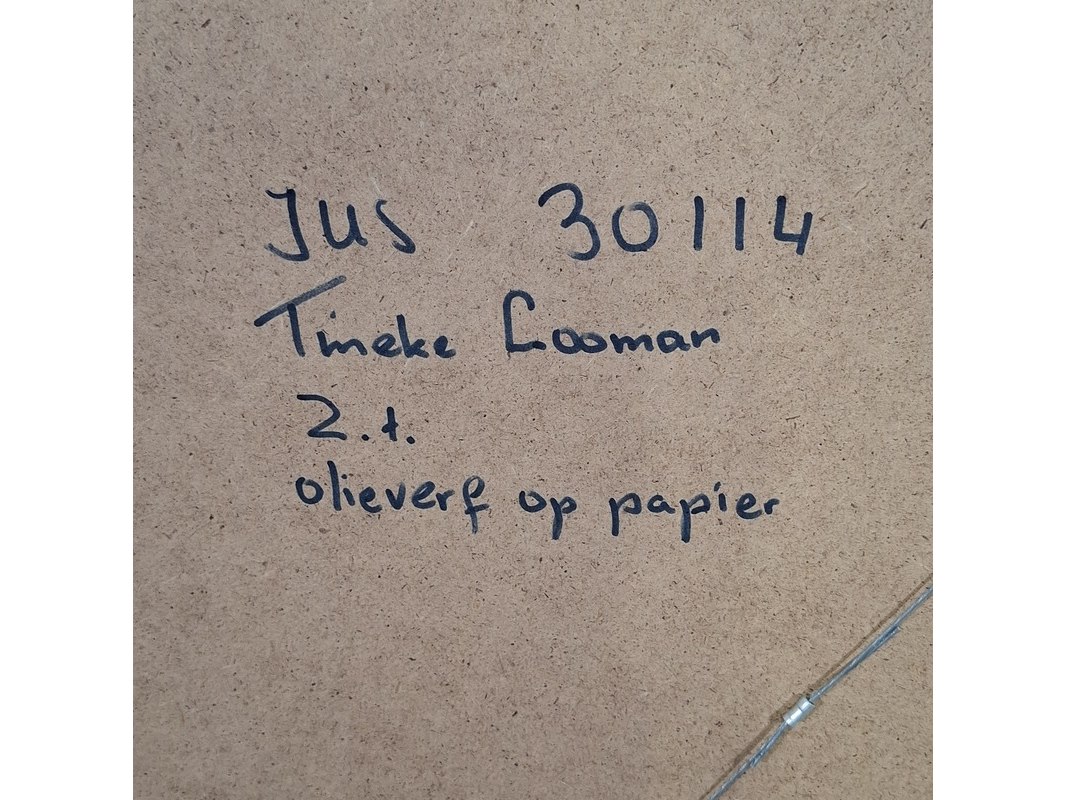 JUS 30114
Tineke Looman
Z.t.
olieverf op papier